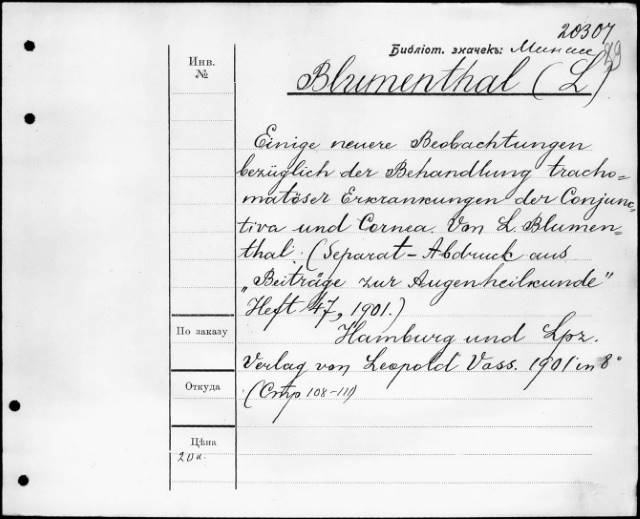 20307
Инв. №
Библіот. значекъ:
Blumenthal (L)
Einige neuere Beobachtungen
bezüglich der Behandlung tracho-
matöser Erkrankungen der Conjunc-
tiva und Cornea. Von L. Blumen-
thal. (Separat-Abdruck aus
„Beiträge zur Augenheilkunde"
Heft 47, 1901.)
По заказу
Hamburg und Lpz.
Verlag von Leopold Voss. 1901 in 8°
Откуда
(Стр 108-111)
Цѣна
20 к.